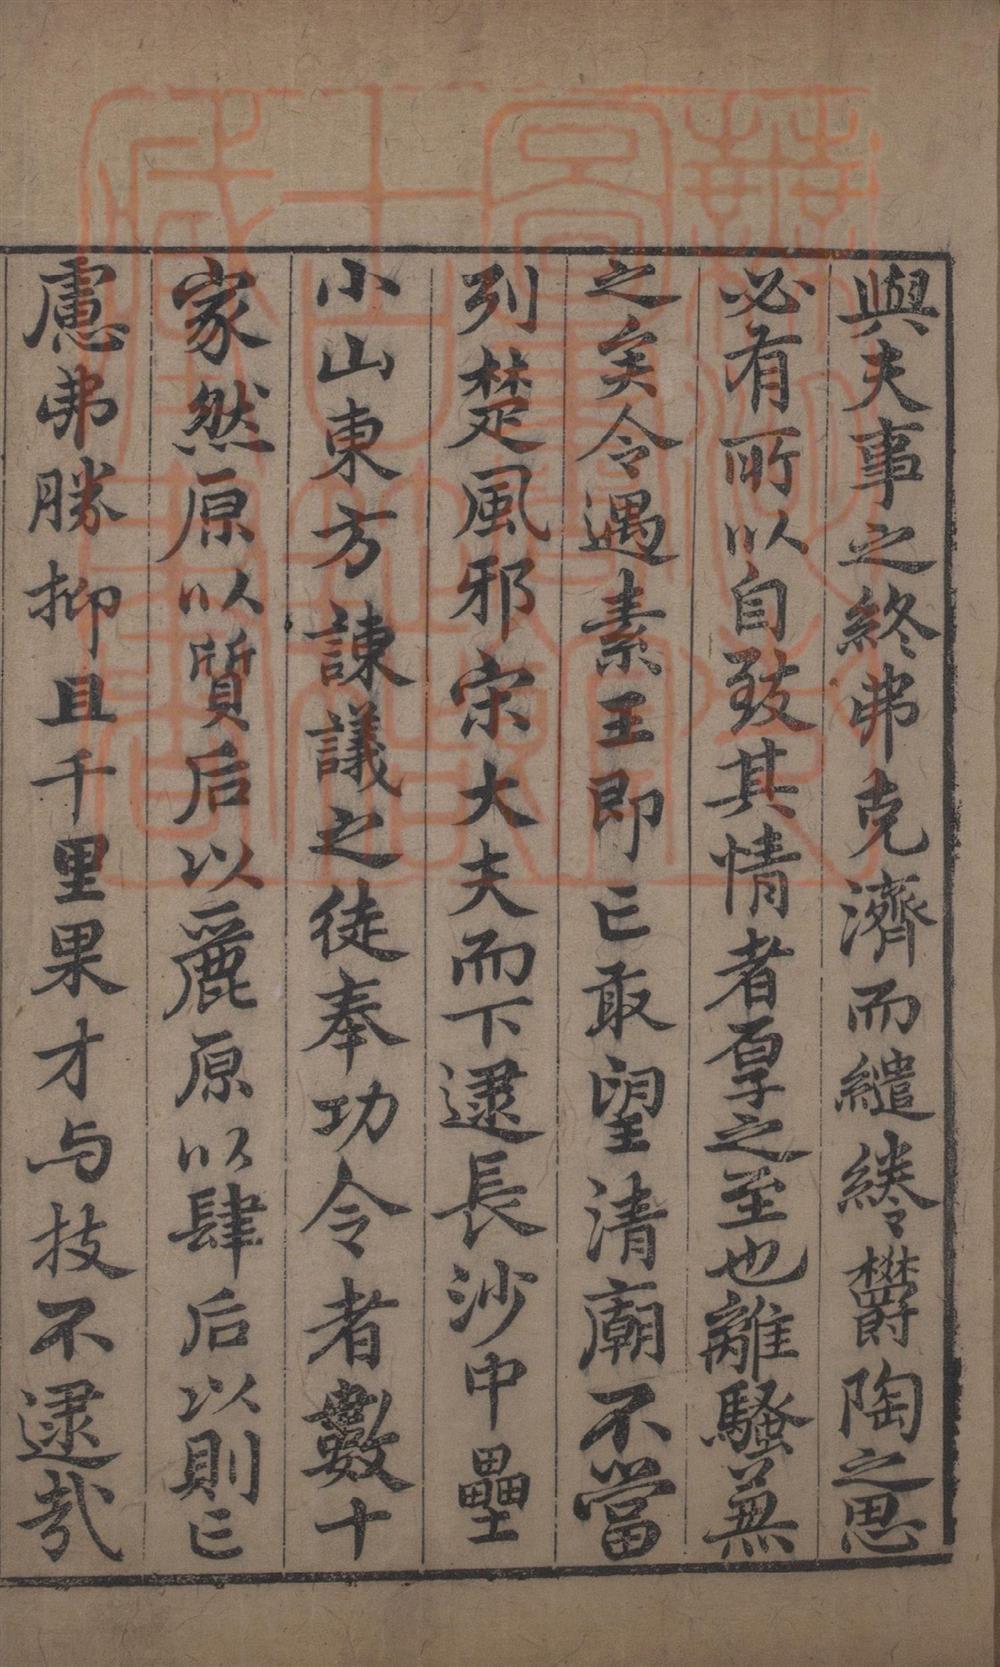 與夫事之終弗克濟而繾綣欝陶之思
必有所以自致其情者厚之至也離騷兼
之矣令遇素王即已取望清廟不當
列楚風邪宋大夫而下逮長沙中壘
小山東方諫議之徒奉功令者數十
家然原以質后以麗原以肆后以則已
慮弗勝抑且千里果才与技不逮㢤